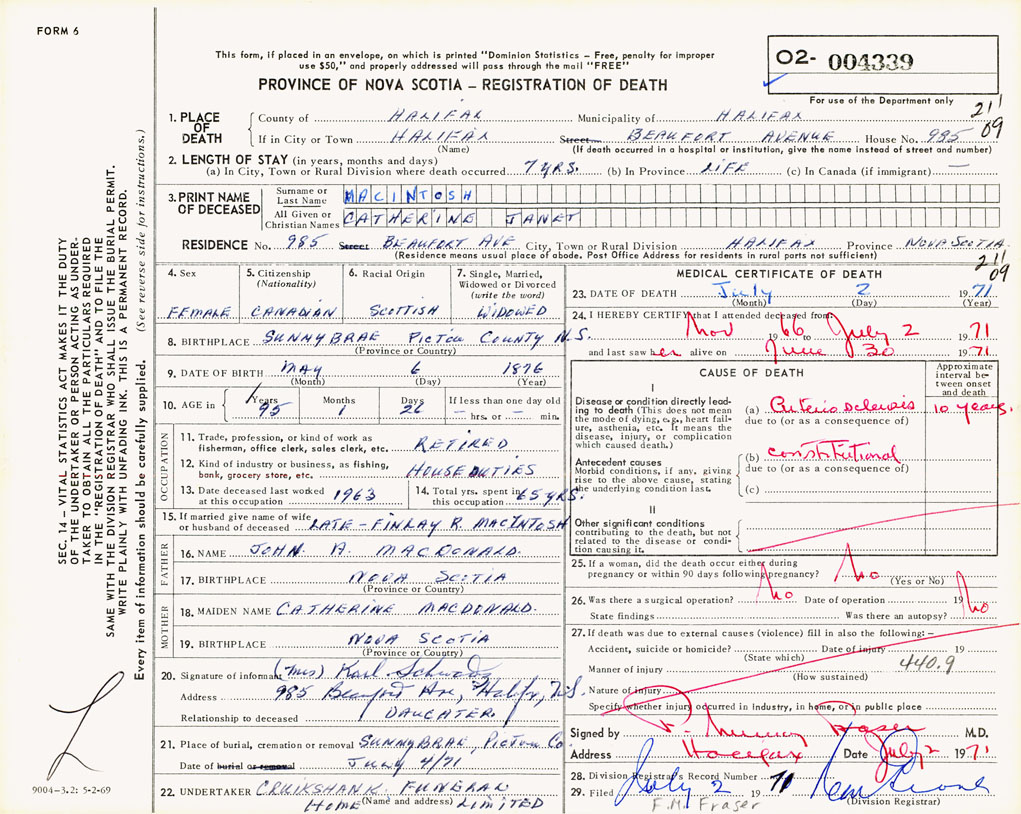 FORM 6
This form, if placed in an envelope, on which is printed "Dominion Statistics – Free, penalty for improper
use $50," and properly addressed will pass through the mail "FREE"
PROVINCE OF NOVA SCOTIA – REGISTRATION OF DEATH
02- 004339
For use of the Department only
21/09
1. PLACE OF DEATH
County of HALIFAX Municipality of HALIFAX
If in City or Town HALIFAX Street BEAUFORT AVENUE House No. 985
(Name) (If death occurred in a hospital or institution, give the name instead of street and number)
2. LENGTH OF STAY (in years, months and days)
(a) In City, Town or Rural Division where death occurred 7 YRS. (b) In Province LIFE (c) In Canada (if immigrant) —
3. PRINT NAME OF DECEASED
Surname or Last Name MACINTOSH
All Given or Christian Names CATHERINE JANET
RESIDENCE No. 985 Street BEAUFORT AVE City, Town or Rural Division HALIFAX Province NOVA SCOTIA
(Residence means usual place of abode. Post Office Address for residents in rural parts not sufficient)
21/09
4. Sex
FEMALE
5. Citizenship (Nationality)
CANADIAN
6. Racial Origin
SCOTTISH
7. Single, Married, Widowed or Divorced (write the word)
WIDOWED
8. BIRTHPLACE SUNNYBRAE PICTOU COUNTY N.S.
(Province or Country)
9. DATE OF BIRTH MAY 6 1876
(Month) (Day) (Year)
10. AGE in Years Months Days If less than one day old
95 1 26 — hrs. or — min.
OCCUPATION
11. Trade, profession, or kind of work as
fisherman, office clerk, sales clerk, etc. RETIRED
12. Kind of industry or business, as fishing,
bank, grocery store, etc. HOUSE DUTIES
13. Date deceased last worked at this occupation 1963
14. Total yrs. spent in this occupation 65 YRS.
15. If married give name of wife
or husband of deceased LATE - FINLAY R. MACINTOSH
FATHER
16. NAME JOHN A. MACDONALD.
17. BIRTHPLACE NOVA SCOTIA
(Province or Country)
MOTHER
18. MAIDEN NAME CATHERINE MACDONALD.
19. BIRTHPLACE NOVA SCOTIA
(Province or Country)
20. Signature of informant (Mrs) Karl
Address 985 Beauford Ave, Halifax, N.S.
Relationship to deceased DAUGHTER.
21. Place of burial, cremation or removal SUNNYBRAE, PICTOU CO.
Date of burial or removal JULY 4/71
22. UNDERTAKER CRUIKSHANK FUNERAL
HOME (Name and address) LIMITED
MEDICAL CERTIFICATE OF DEATH
23. DATE OF DEATH July 2 1971
(Month) (Day) (Year)
24. I HEREBY CERTIFY that I attended deceased from
Nov 1966 July 2 1971
and last saw her alive on June 30 1971
CAUSE OF DEATH
Approximate interval between onset and death
I
Disease or condition directly leading to death (This does not mean
the mode of dying, e.g., heart failure, asthenia, etc. It means the
disease, injury, or complication
which caused death.)
(a) Arteriosclerosis 10 years.
due to (or as a consequence of)
Antecedent causes
Morbid conditions, if any, giving
rise to the above cause, stating
the underlying condition last.
(b) constitutional
due to (or as a consequence of)
(c)
II
Other significant conditions
contributing to the death, but not
related to the disease or condition causing it.
25. If a woman, did the death occur either during
pregnancy or within 90 days following pregnancy? No
(Yes or No)
26. Was there a surgical operation? No Date of operation 19
State findings Was there an autopsy? No
27. If death was due to external causes (violence) fill in also the following:–
Accident, suicide or homicide? Date of injury 19
(State which) 440.9
Manner of injury
(How sustained)
Nature of injury
Specify whether injury occurred in industry, in home, or in public place
Signed by P. Murray Fraser M.D.
Address Halifax Date July 2 1971
28. Division Registrar's Record Number
29. Filed July 2 1971
(Division Registrar)
F.M. Fraser
SEC. 14 – VITAL STATISTICS ACT MAKES IT THE DUTY
OF THE UNDERTAKER OR PERSON ACTING AS UNDERTAKER TO OBTAIN ALL THE PARTICULARS REQUIRED
IN THE "REGISTRATION OF DEATH" AND TO FILE THE
SAME WITH THE DIVISION REGISTRAR WHO SHALL ISSUE THE BURIAL PERMIT.
WRITE PLAINLY WITH UNFADING INK. THIS IS A PERMANENT RECORD.
Every item of information should be carefully supplied. (See reverse side for instructions.)
9004-3.2: 5-2-69